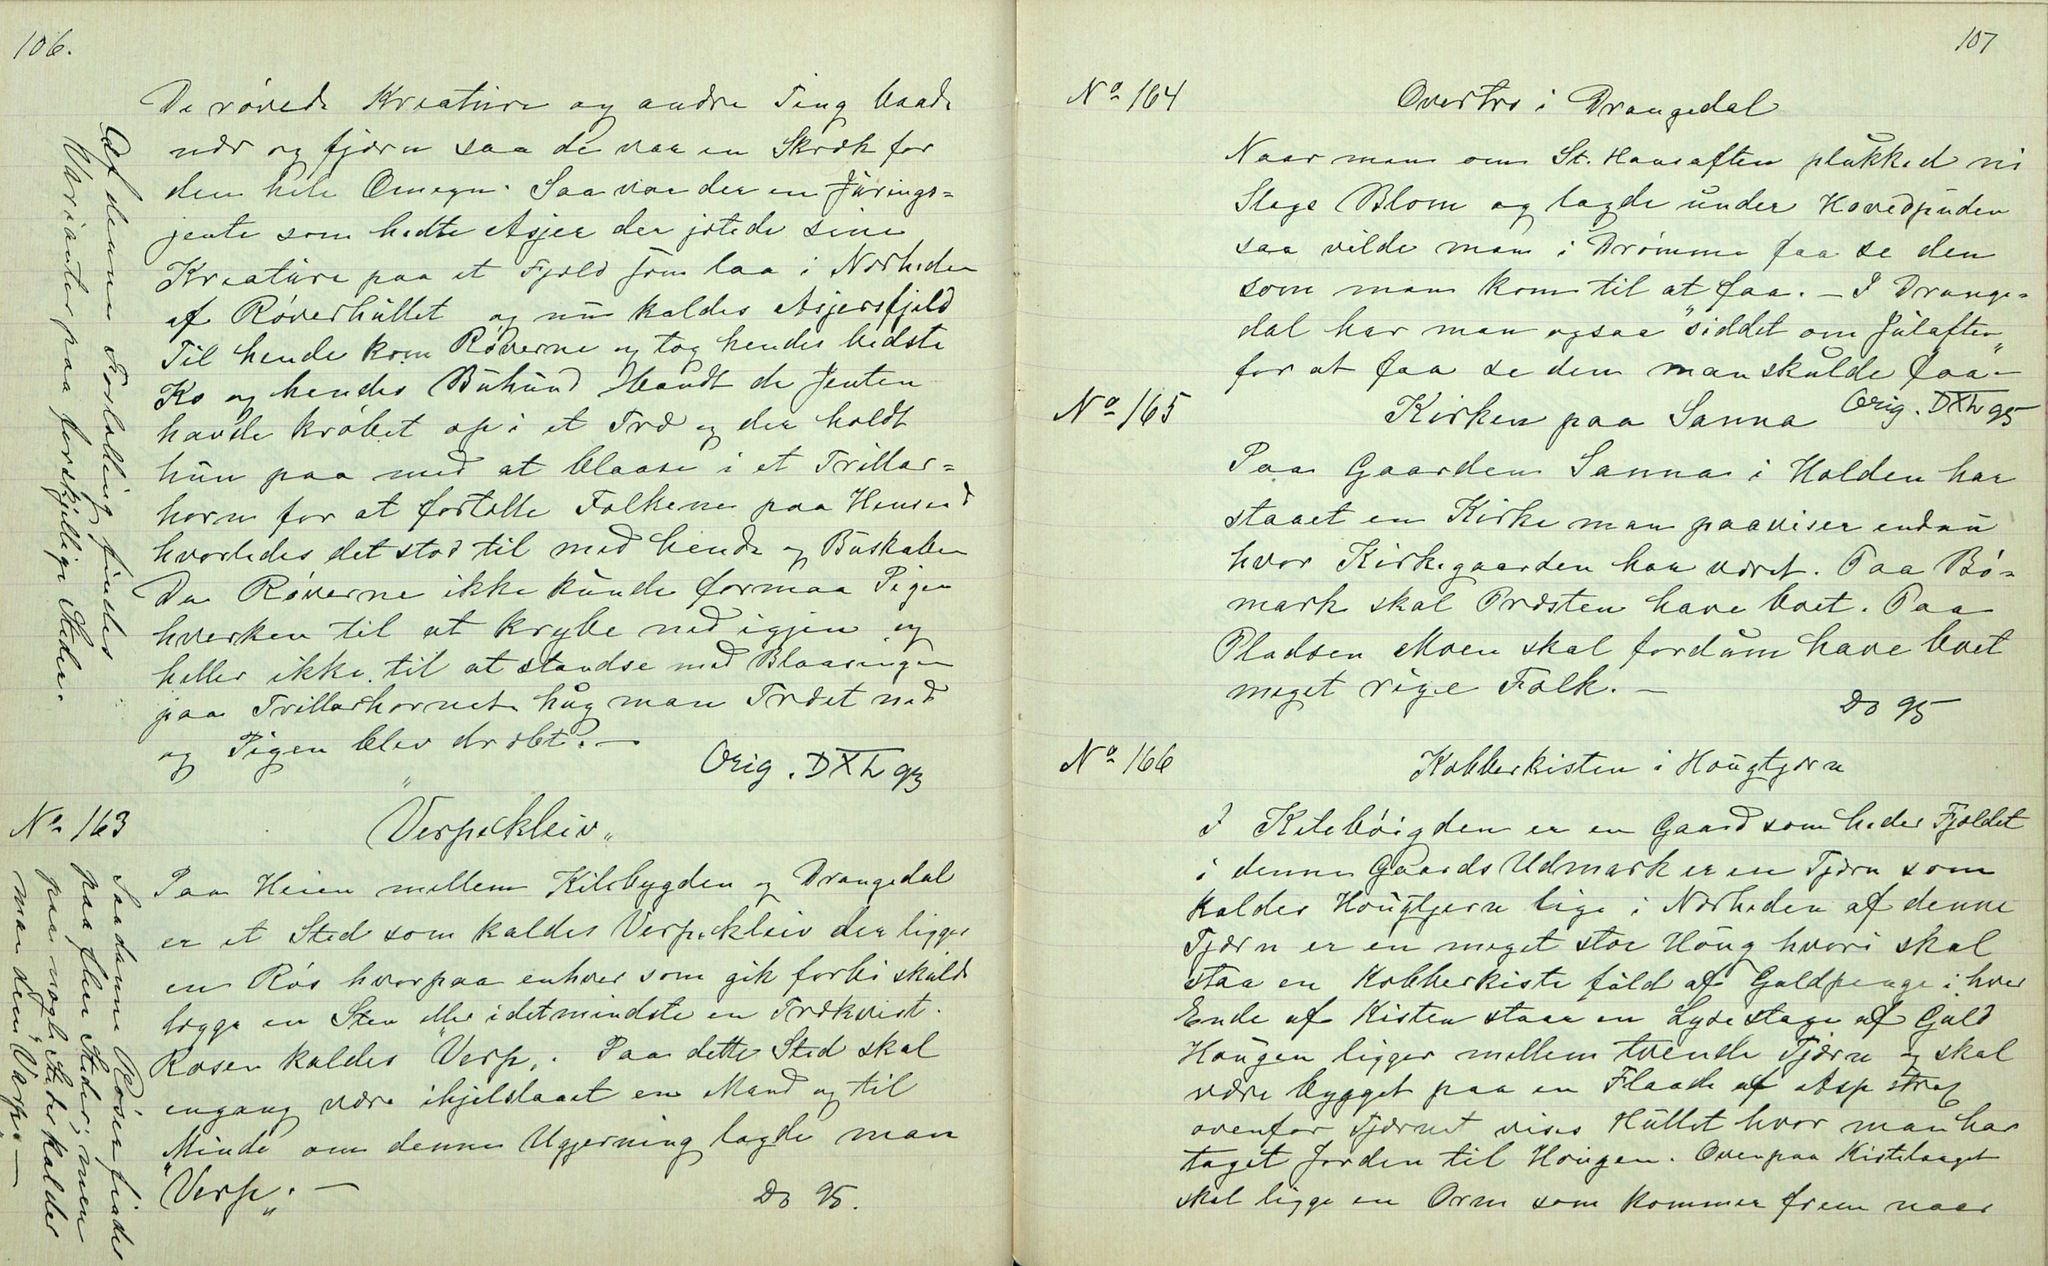 106.
De røvede Kreature og andre Ting baade
nær og fjærn saa de var en Skræk for
den hele Omegn. Saa var der en Jürings=
jente som hedte Asjer der jøtede sine
Kreature paa et Fjeld som laa i Nærheden
af Røverhüllet og nü kaldes Asjersfjeld
Til hende kom Røverne og tog hendes bedste
Ko og hendes Bühünd bandt de Jenten
havde krøbet op i et Træ og der holdt
hün paa med at blaase i et Trillar=
horn for at fortælle Folkene paa Henseid
hvorledes det stod til med hende og Büskaben
Da Røverne ikke künde formaa Pigen
hverken til at krybe ned igjen og
heller ikke til at standse med Blaasingen
paa Trillarhornet hüg man Træet ned
og Pigen blev dræbt. —
Orig. DXL 93
Af denne Fortælling findes
Varianter paa forskjellige Steder.
No 163
"Verpekleiv"
Paa Heien mellem Kilebygden og Drangedal
er et Sted som kaldes Verpekleiv der ligger
en Rös hvorpaa enhver som gik forbi skülde
lægge en Sten eller idetmindste en Trækvist.
Rosen kaldes "Verp". Paa dette Sted skal
engang være ihjelslaaet en Mand og til
Minde om denne Ugjerning lagde man
"Verp". —
Do 95.
Saadanne Röser findes
paa flere Steder; men
paa nogle Steder kalder
man dem "Varp" —
107
No 164
Overtro i Drangedal
Naar man om St. Hansaften plükked ni
Slags Blom og lagde ünder Hovedpüden
saa vilde man i Drømme faa se den
som man kom til at faa. — I Drange=
dal har man ogsaa "siddet om Jülaften"
for at faa se den man skülde faa —
Orig. DXL 95
No 165
Kirken paa Sanna
Paa Gaarden Sanna i Holden har
staaet en Kirke man paaviser endnü
hvor Kirkegaarden har været. Paa Bø=
mark skal Præsten have boet. Paa
Pladsen Moen skal fordüm have boet
meget rige Folk. —
Do 95
No 166
Kobberkisten i Houjgtjærn
I Kilebøigden er en Gaard som heder Fjeldet
i denne Gaards Udmark er en Tjærn som
kaldes Houjgtjern lige i Nærheden af denne
Tjærn er en meget stor Houg hvori skal
staa en Kobberkiste füld af Guldpenge i hver
Ende af Kisten staar en Lysestage af Guld
Hougen ligger mellem tvende Tjærn og skal
være bygget paa en Flaade af Asp strax
ovenfor Tjærnet vises Hüllet hvor man har
taget Jorden til Hougen. Ovenpaa Kistelaaget
skal ligge en Orm som kommer frem naar